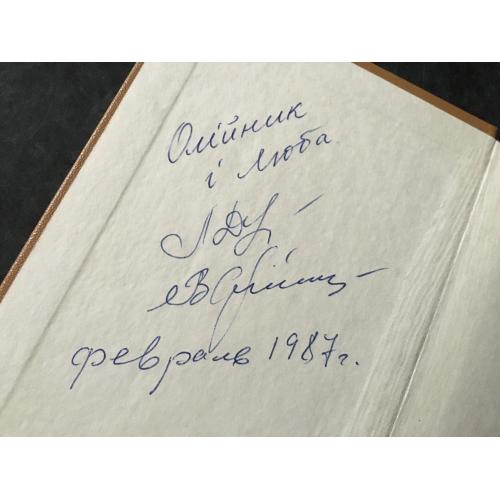 Олійник
і Люба.
ЛДУ -
февраль 1987 г.